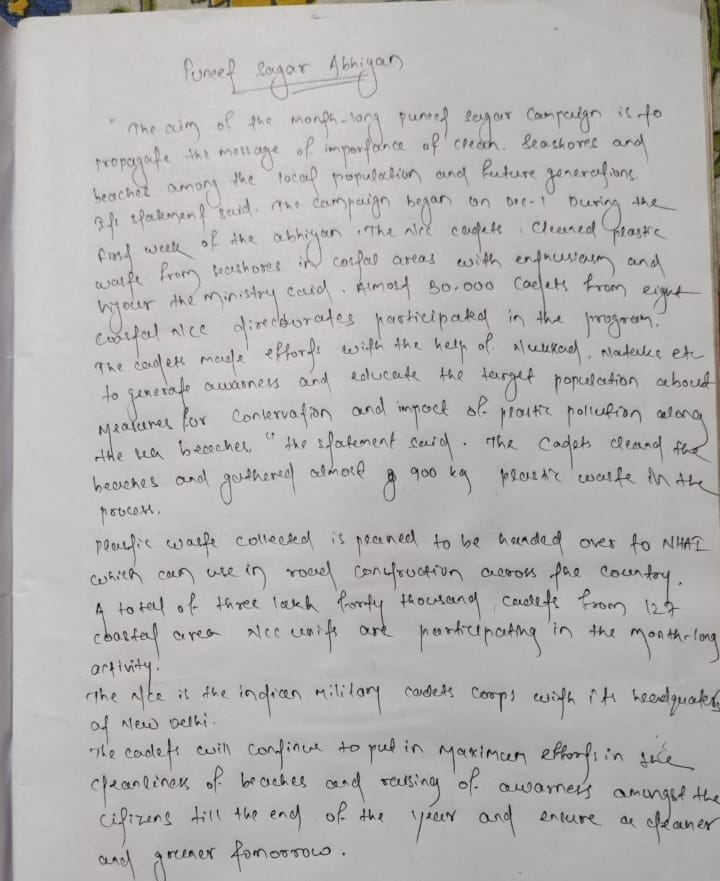 Puneet Sagar Abhiyan
"The aim of the month-long puneet sagar campaign is to
propagate the message of importance of clean. Seashores and
beaches among the local population and future generations.
statement said. The campaign began on Dec-1 During the
first week of the abhiyan. The ncc cadets cleaned plastic
waste from seashores in costal areas with enthusiasm and
the ministry said. Almost 80.000 cadets from eight
coastal ncc directorates participated in the program.
The cadets made efforts with the help of Nukkad, Nataks etc
to generate awarness and educate the target population about
Measures for conservation and impact of plastic pollution along
the sea beaches," the statement said. The cadets cleand the
beaches and gathered almost 900 kg plastic waste in the
process.
plastic waste collected is planed to be handed over to NHAI
which can use in road construction across the country.
A total of three lakh forty thousand, cadets from 127
coastal area Ncc units are participating in the month-long
activity.
The Ncc is the indian Military cadets corps with its headquaters
at New Delhi.
The cadets will continue to put in Maximum efforts in
cleanliness of beaches and raising of awarness amongst the
citizens till the end of the year and ensure a cleaner
and greener tomorrow.